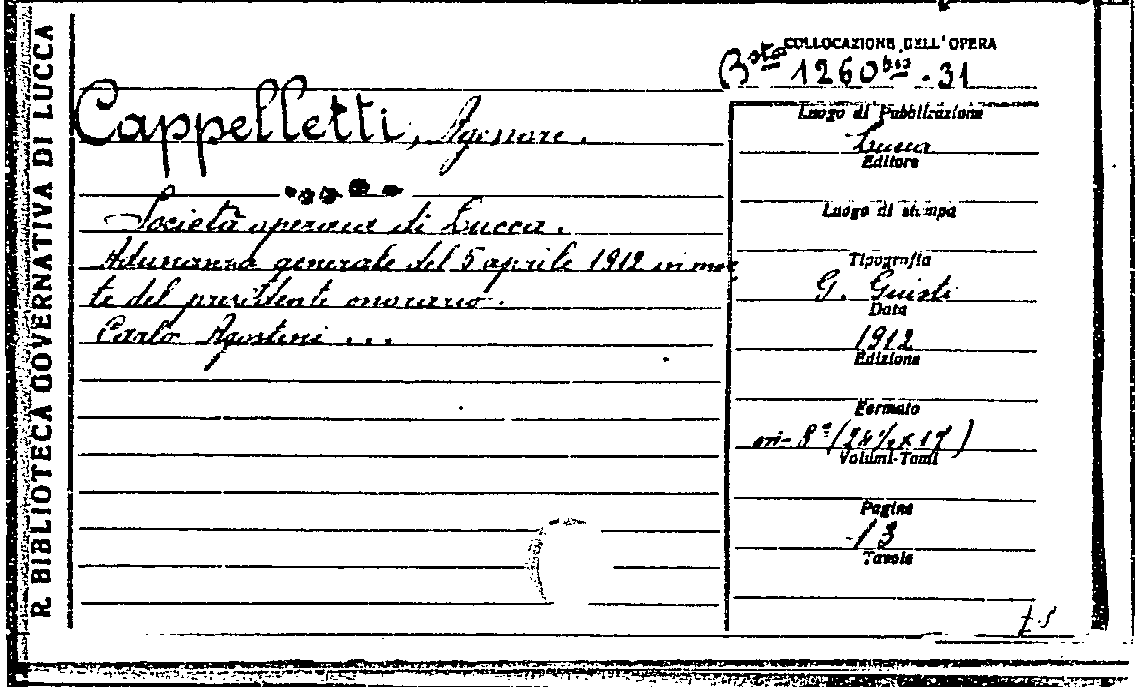 R. BIBLIOTECA GOVERNATIVA DI LUCCA
COLLOCAZIONE DELL'OPERA
Bsta 1260bis - 31
Cappelletti, Agenore.
Società operaia di Lucca.
Adunanza generale del 5 aprile 1912 in mor
te del presidente onorario.
Carlo Agostini ...
Luogo di Pubblicazione
Lucca
Editore
Luogo di stampa
Tipografia
G. Giusti
Data
1912
Edizione
Formato
in-8º (24½ x 17)
Volumi-Tomi
Pagine
13
Tavole